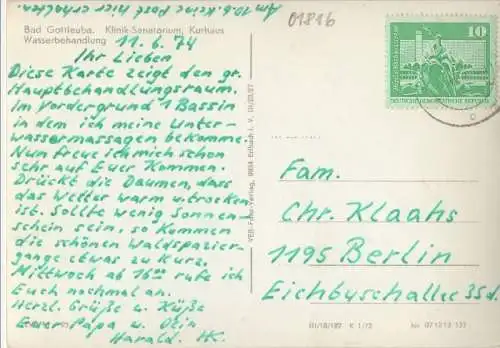 Am 10.6. keine Post hier erhalten.
01816
Bad Gottleuba. Klinik-Sanatorium, Kurhaus
Wasserbehandlung
11.6.74
Ihr Lieben
Diese Karte zeigt den gr.
Hauptbehandlungsraum.
Im Vordergrund 1 Bassin
in dem ich meine Unter-
wassermassagen bekomme.
Nun freue ich mich schon
sehr auf Euer Kommen.
Drückt die Daumen, dass
das Wetter warm u. trocken
ist. Sollte wenig Sonnen-
schein sein, so kommen
die schönen Waldspazier-
gänge etwas zu kurz.
Mittwoch ab 16°° rufe ich
Euch nochmal an.
Herzl. Grüße u. Küße
Euer Papa u.
Harald.
VEB Foto-Verlag, 9934 Erlbach i. V.
10
DEUTSCHE DEMOKRATISCHE REPUBLIK
Fam.
Chr. Klaahs
1195 Berlin
Eichbuschallee 35d.
III/18/187 K 1/72